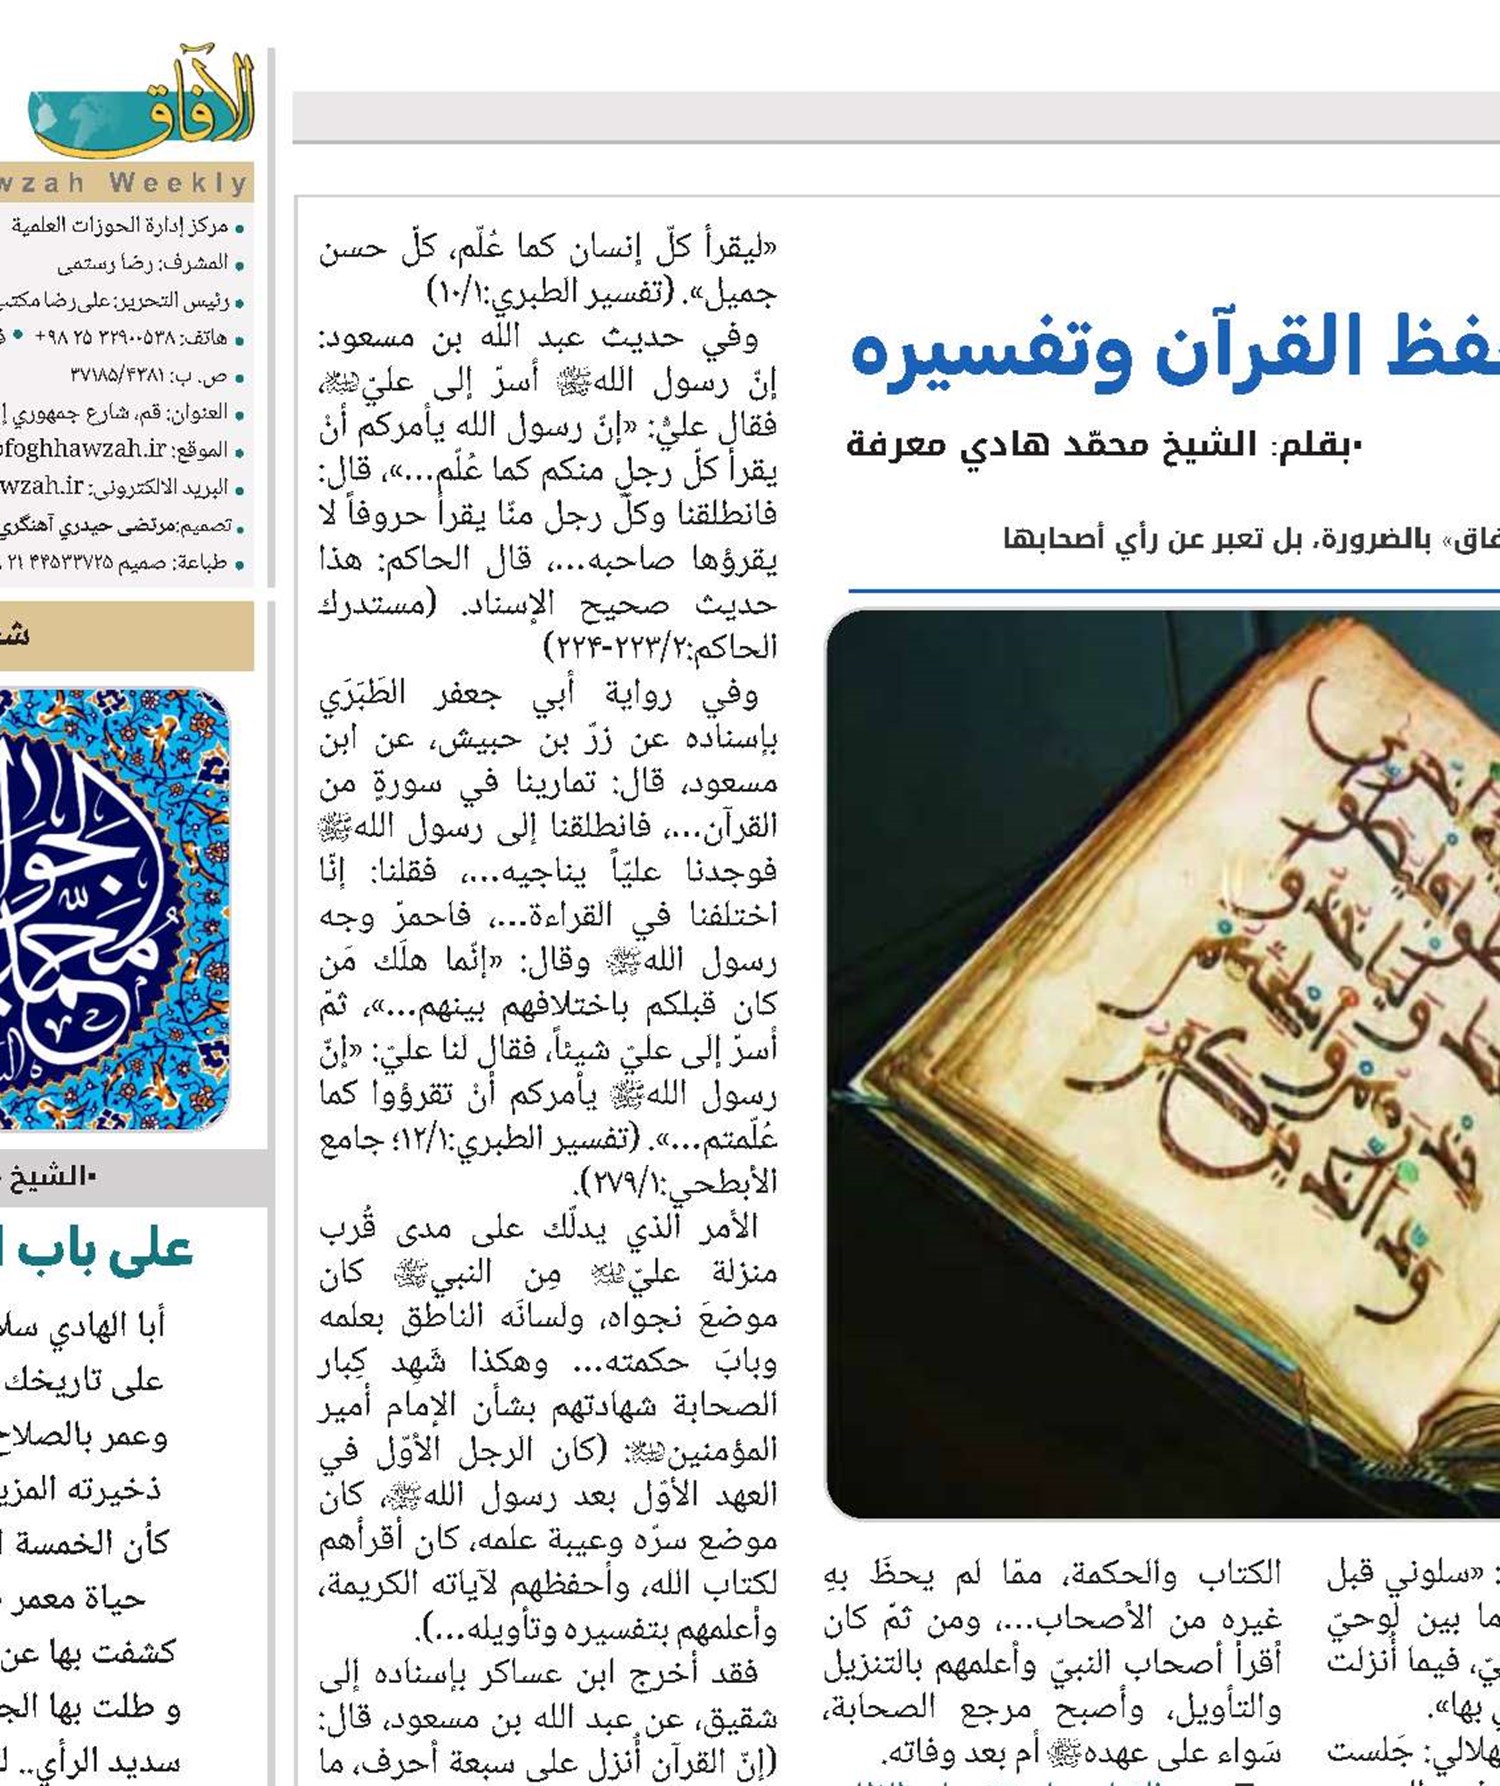 فظ القرآن وتفسيره
•بقلم: الشيخ محمّد هادي معرفة
فاق» بالضرورة، بل تعبر عن رأي أصحابها
: «سلوني قبل
ما بين لوحيّ
يّ، فيما أُنزلت
ي بها».
هلالي: جَلست
الكتاب والحكمة، ممّا لم يحظَ بهِ
غيره من الأصحاب...، ومن ثمّ كان
أقرأ أصحاب النبيّ وأعلمهم بالتنزيل
والتأويل، وأصبح مرجع الصحابة،
سَواء على عهدهﷺ أم بعد وفاته.
«ليقرأ كلّ إنسان كما عُلّم، كلّ حسن
جميل». (تفسير الطبري:۱۰/۱)
وفي حديث عبد الله بن مسعود:
إنّ رسول اللهﷺ أسرّ إلى عليّ،
فقال عليٌّ: «إنّ رسول الله يأمركم أنْ
يقرأ كلّ رجلٍ منكم كما عُلّم...»، قال:
فانطلقنا وكلّ رجل منّا يقرأ حروفاً لا
يقرؤها صاحبه...، قال الحاكم: هذا
حديث صحيح الإسناد. (مستدرك
الحاكم:۲۲۳/۲-۲۲۴)
وفي رواية أبي جعفر الطَبَرَي
بإسناده عن زرّ بن حبيش، عن ابن
مسعود، قال: تمارينا في سورةٍ من
القرآن...، فانطلقنا إلى رسول اللهﷺ
فوجدنا عليّاً يناجيه...، فقلنا: إنّا
اختلفنا في القراءة...، فاحمرّ وجه
رسول اللهﷺ وقال: «إنّما هلَك مَن
كان قبلكم باختلافهم بينهم...»، ثمّ
أسرّ إلى عليّ شيئاً، فقال لنا عليّ: «إنّ
رسول اللهﷺ يأمركم أنْ تقرؤوا كما
عُلّمتم...». (تفسير الطبري:۱۲/۱؛ جامع
الأبطحي:۲۷۹/۱).
الأمر الذي يدلّك على مدى قُرب
منزلة عليّ مِن النبيﷺ كان
موضعَ نجواه، ولسانَه الناطق بعلمه
وبابَ حكمته... وهكذا شَهِد كِبار
الصحابة شهادتهم بشأن الإمام أمير
المؤمنين: (كان الرجل الأوّل في
العهد الأوّل بعد رسول اللهﷺ، كان
موضع سرّه وعيبة علمه، كان أقرأهم
لكتاب الله، وأحفظهم لآياته الكريمة،
وأعلمهم بتفسيره وتأويله...).
فقد أخرج ابن عساكر بإسناده إلى
شقيق، عن عبد الله بن مسعود، قال:
(إنّ القرآن أُنزل على سبعة أحرف، ما
الآفاق
wzah Weekly
• مركز إدارة الحوزات العلمية
• المشرف: رضا رستمی
• رئيس التحرير: علی‌رضا مكتب
• هاتف: ۳۲۹۰۰۵۳۸ ۲۵ ۹۸+ •
• ص. ب: ۳۷۱۸۵/۴۳۸۱
• العنوان: قم، شارع جمهوري إ
• الموقع: ofoghhawzah.ir
• البريد الالكتروني: wzah.ir
• تصميم:مرتضى حيدري آهنگري
• طباعة: صميم ۴۴۵۳۳۷۲۵ ۲۱
•الشيخ
على باب ا
أبا الهادي سلا
على تاريخك
وعمر بالصلاح
ذخيرته المزي
كأن الخمسة ا
حياة معمر
كشفت بها عن
و طلت بها الج
سديد الرأي.. ل